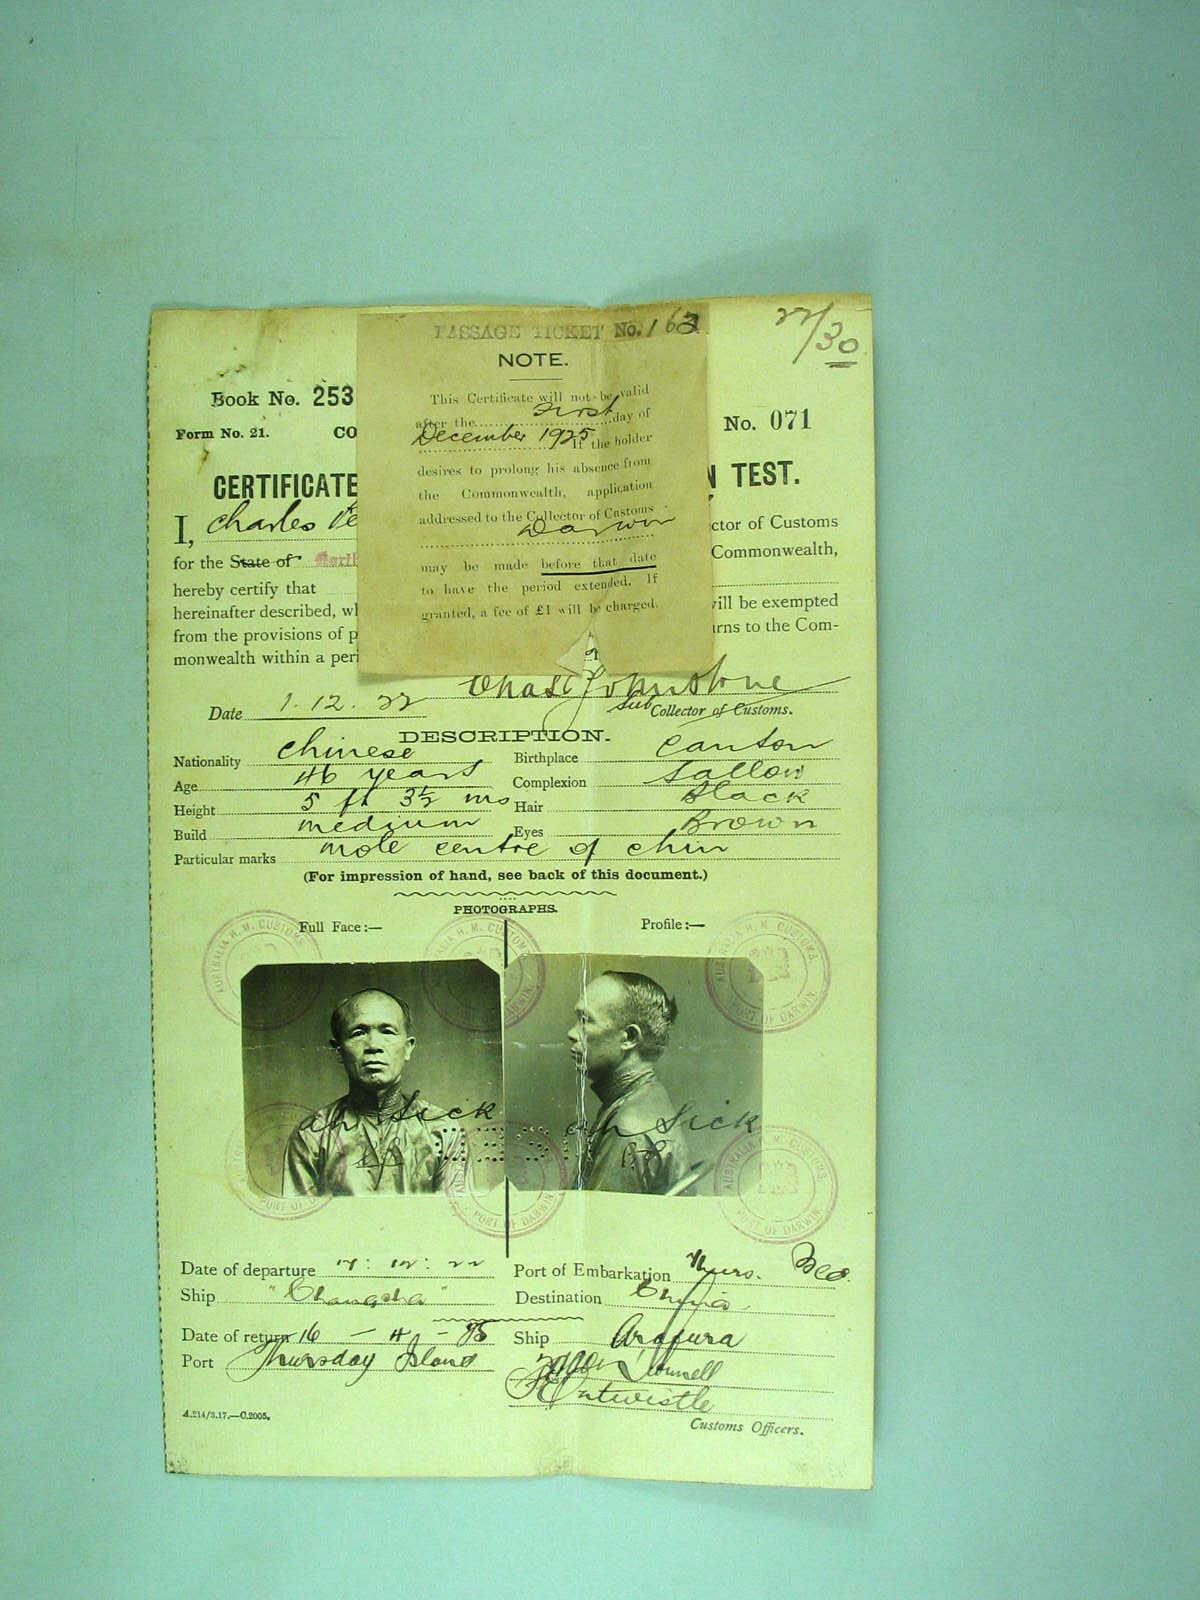 22/30
PASSAGE TICKET No. 163
NOTE.
This Certificate will not be valid
after the first day of
December 1925 If the holder
desires to prolong his absence from
the Commonwealth, application
addressed to the Collector of Customs
Darwin
may be made before that date
to have the period extended. If
granted, a fee of £1 will be charged.
Book No. 253
No. 071
Form No. 21.
CO
CERTIFICATE
N TEST.
I, Charles
ctor of Customs
for the State of
Commonwealth,
hereby certify that
hereinafter described, wh
will be exempted
from the provisions of p
urns to the Com-
monwealth within a peri
Date 1.12.22
Chas Johnstone
Sub Collector of Customs.
DESCRIPTION.
Nationality Chinese Birthplace Canton
Age 46 years Complexion Sallow
Height 5 ft 3½ ins Hair Black
Build medium Eyes Brown
Particular marks mole centre of chin
(For impression of hand, see back of this document.)
PHOTOGRAPHS.
Full Face:— Profile:—
AUSTRALIA H. M. CUSTOMS. PORT OF DARWIN.
Ah Sick
Ah Sick
Date of departure 12: 22 Port of Embarkation Thurs.
Ship "Changsha" Destination China
Date of return 16 - 4 - 25 Ship Arafura
Port Thursday Island
Entwistle
Customs Officers.
A.214/3.17.—C.2005.